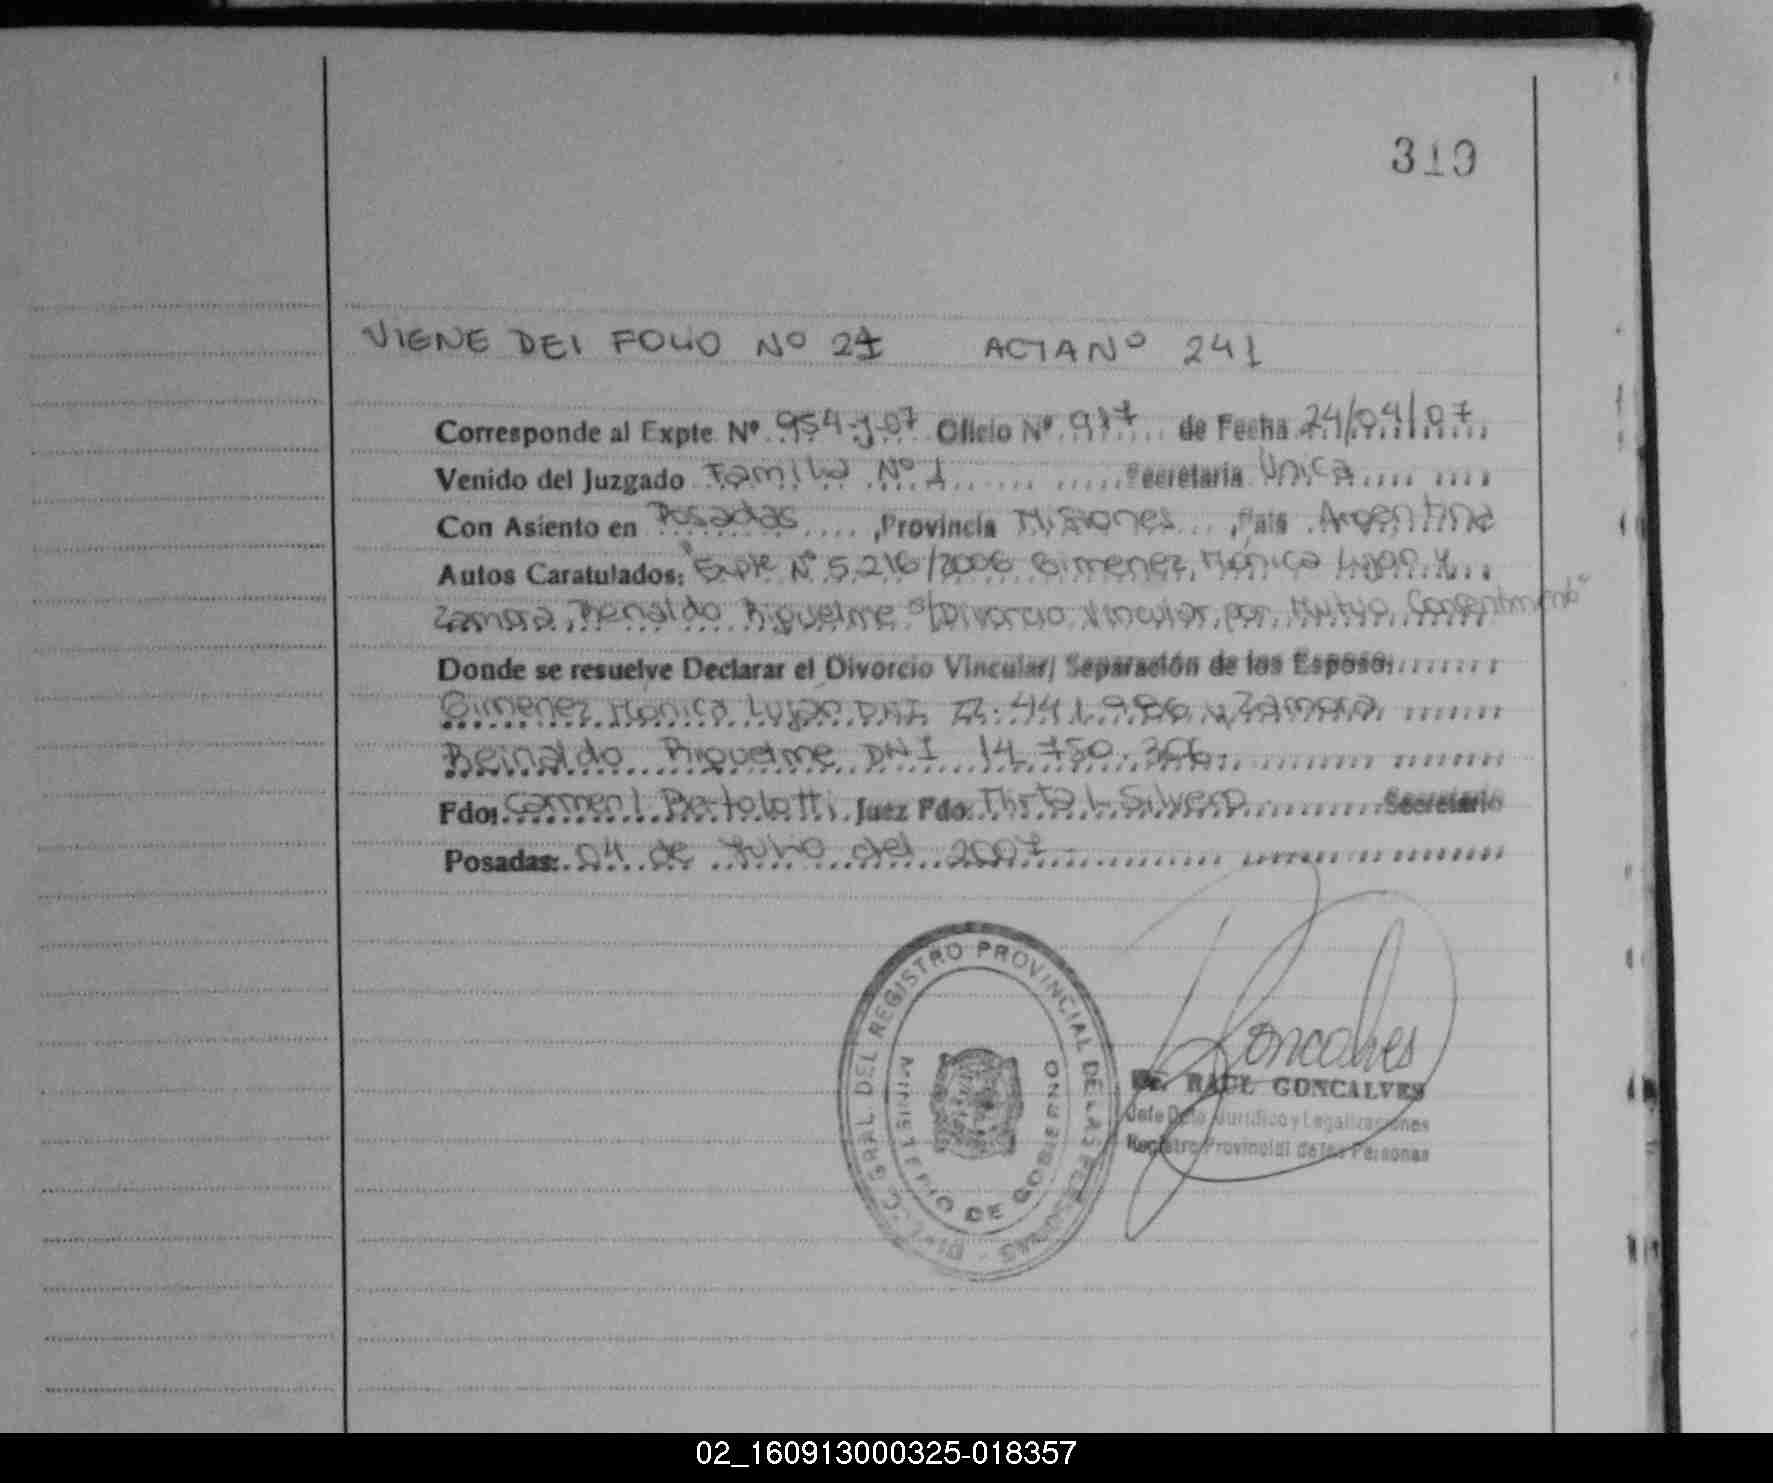 319
VIENE DEL FOLIO Nº 21 ACTA Nº 241
Corresponde al Expte Nº 954-J-07 Oficio Nº 917 de Fecha 24/04/07
Venido del Juzgado Familia Nº 1 Secretaria Unica
Con Asiento en Posadas, Provincia Misiones, Pais Argentina
Autos Caratulados: "Expte Nº 5.216/2006 Gimenez, Monica Lujan y
Zamora Renaldo Riquelme s/Divorcio Vincular por Mutuo Consentimiento"
Donde se resuelve Declarar el Divorcio Vincular/ Separación de los Esposo:
Gimenez Monica Lujan DNI 441.986 y Zamora
Reinaldo Riquelme DNI 14.750.366
Fdo: Carmen I. Bertolotti Juez Fdo. Mirta L Silvero Secretario
Posadas: 04 de Julio del 2007
DIR. GRAL. DEL REGISTRO PROVINCIAL DE LAS PERSONAS
MINISTERIO DE GOBIERNO
Goncalves
Dr. RAUL GONCALVES
Jefe Dpto Jurídico y Legalizaciones
Registro Provincial de las Personas
02_160913000325-018357